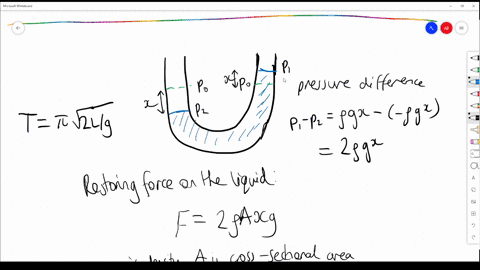 Microsoft Whiteboard
x
P₀
P₂
x
P₀
P₁
T = π√2L/g
pressure difference
P₁-P₂ = ρgx - (-ρgx)
= 2ρgx
Restoring force on the liquid:
F = 2ρAxg
A is cross-sectional area